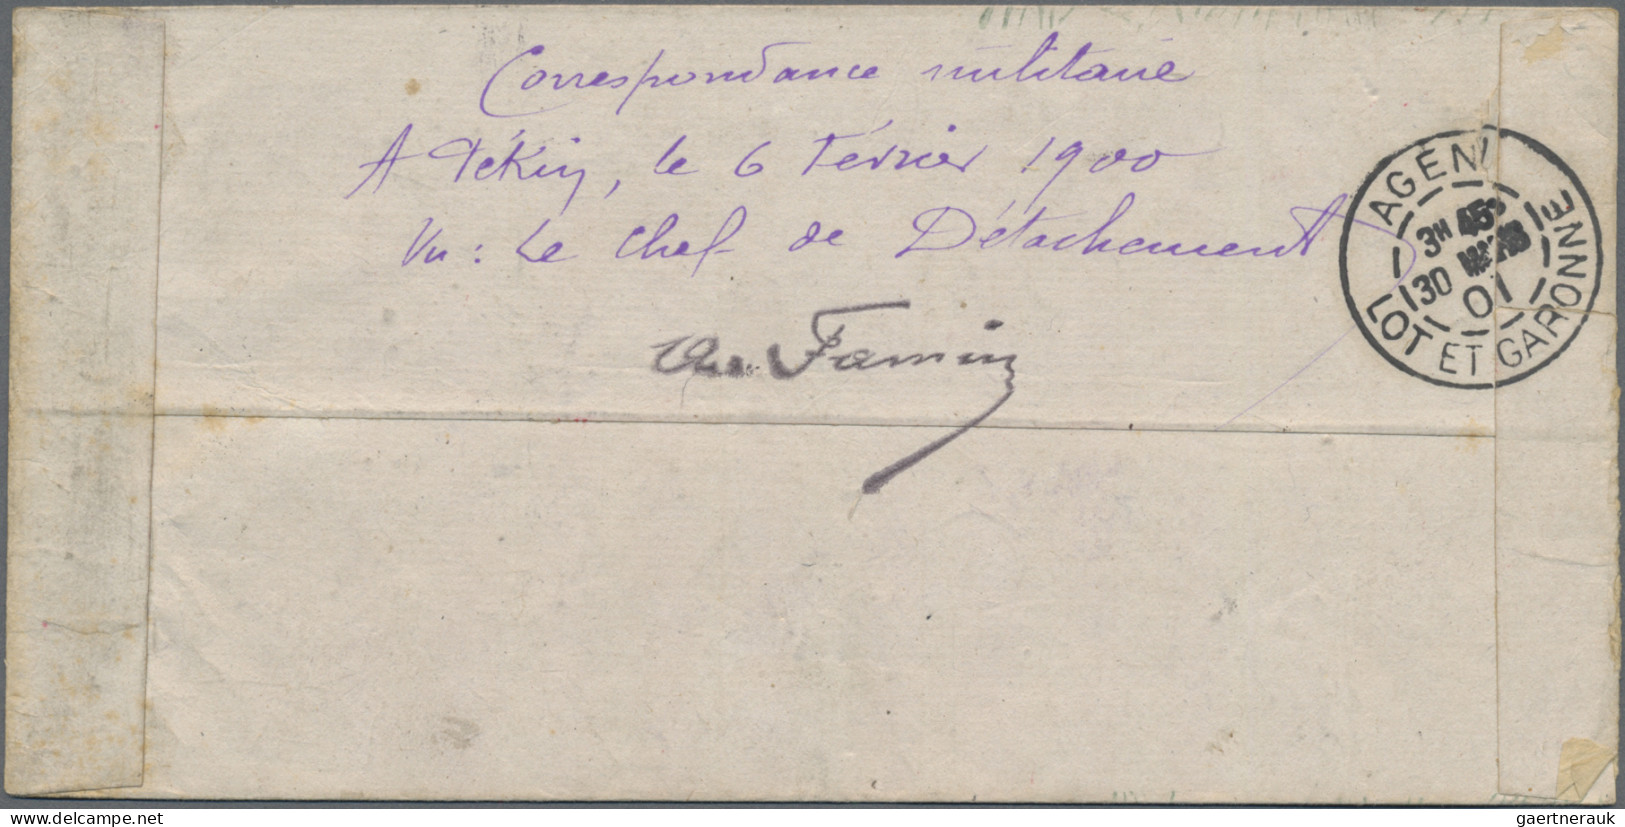 Correspondance militaire
A Pékin, le 6 Février 1900
Vu : Le Chef de Détachement
Famin
AGEN
3H 45
30 MARS
01
LOT ET GARONNE
gaertnerauk